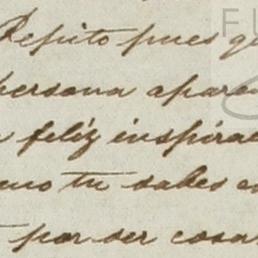 Repito pues qu
persona apare
feliz inspirac
mo tu sabes e
por ser cosa